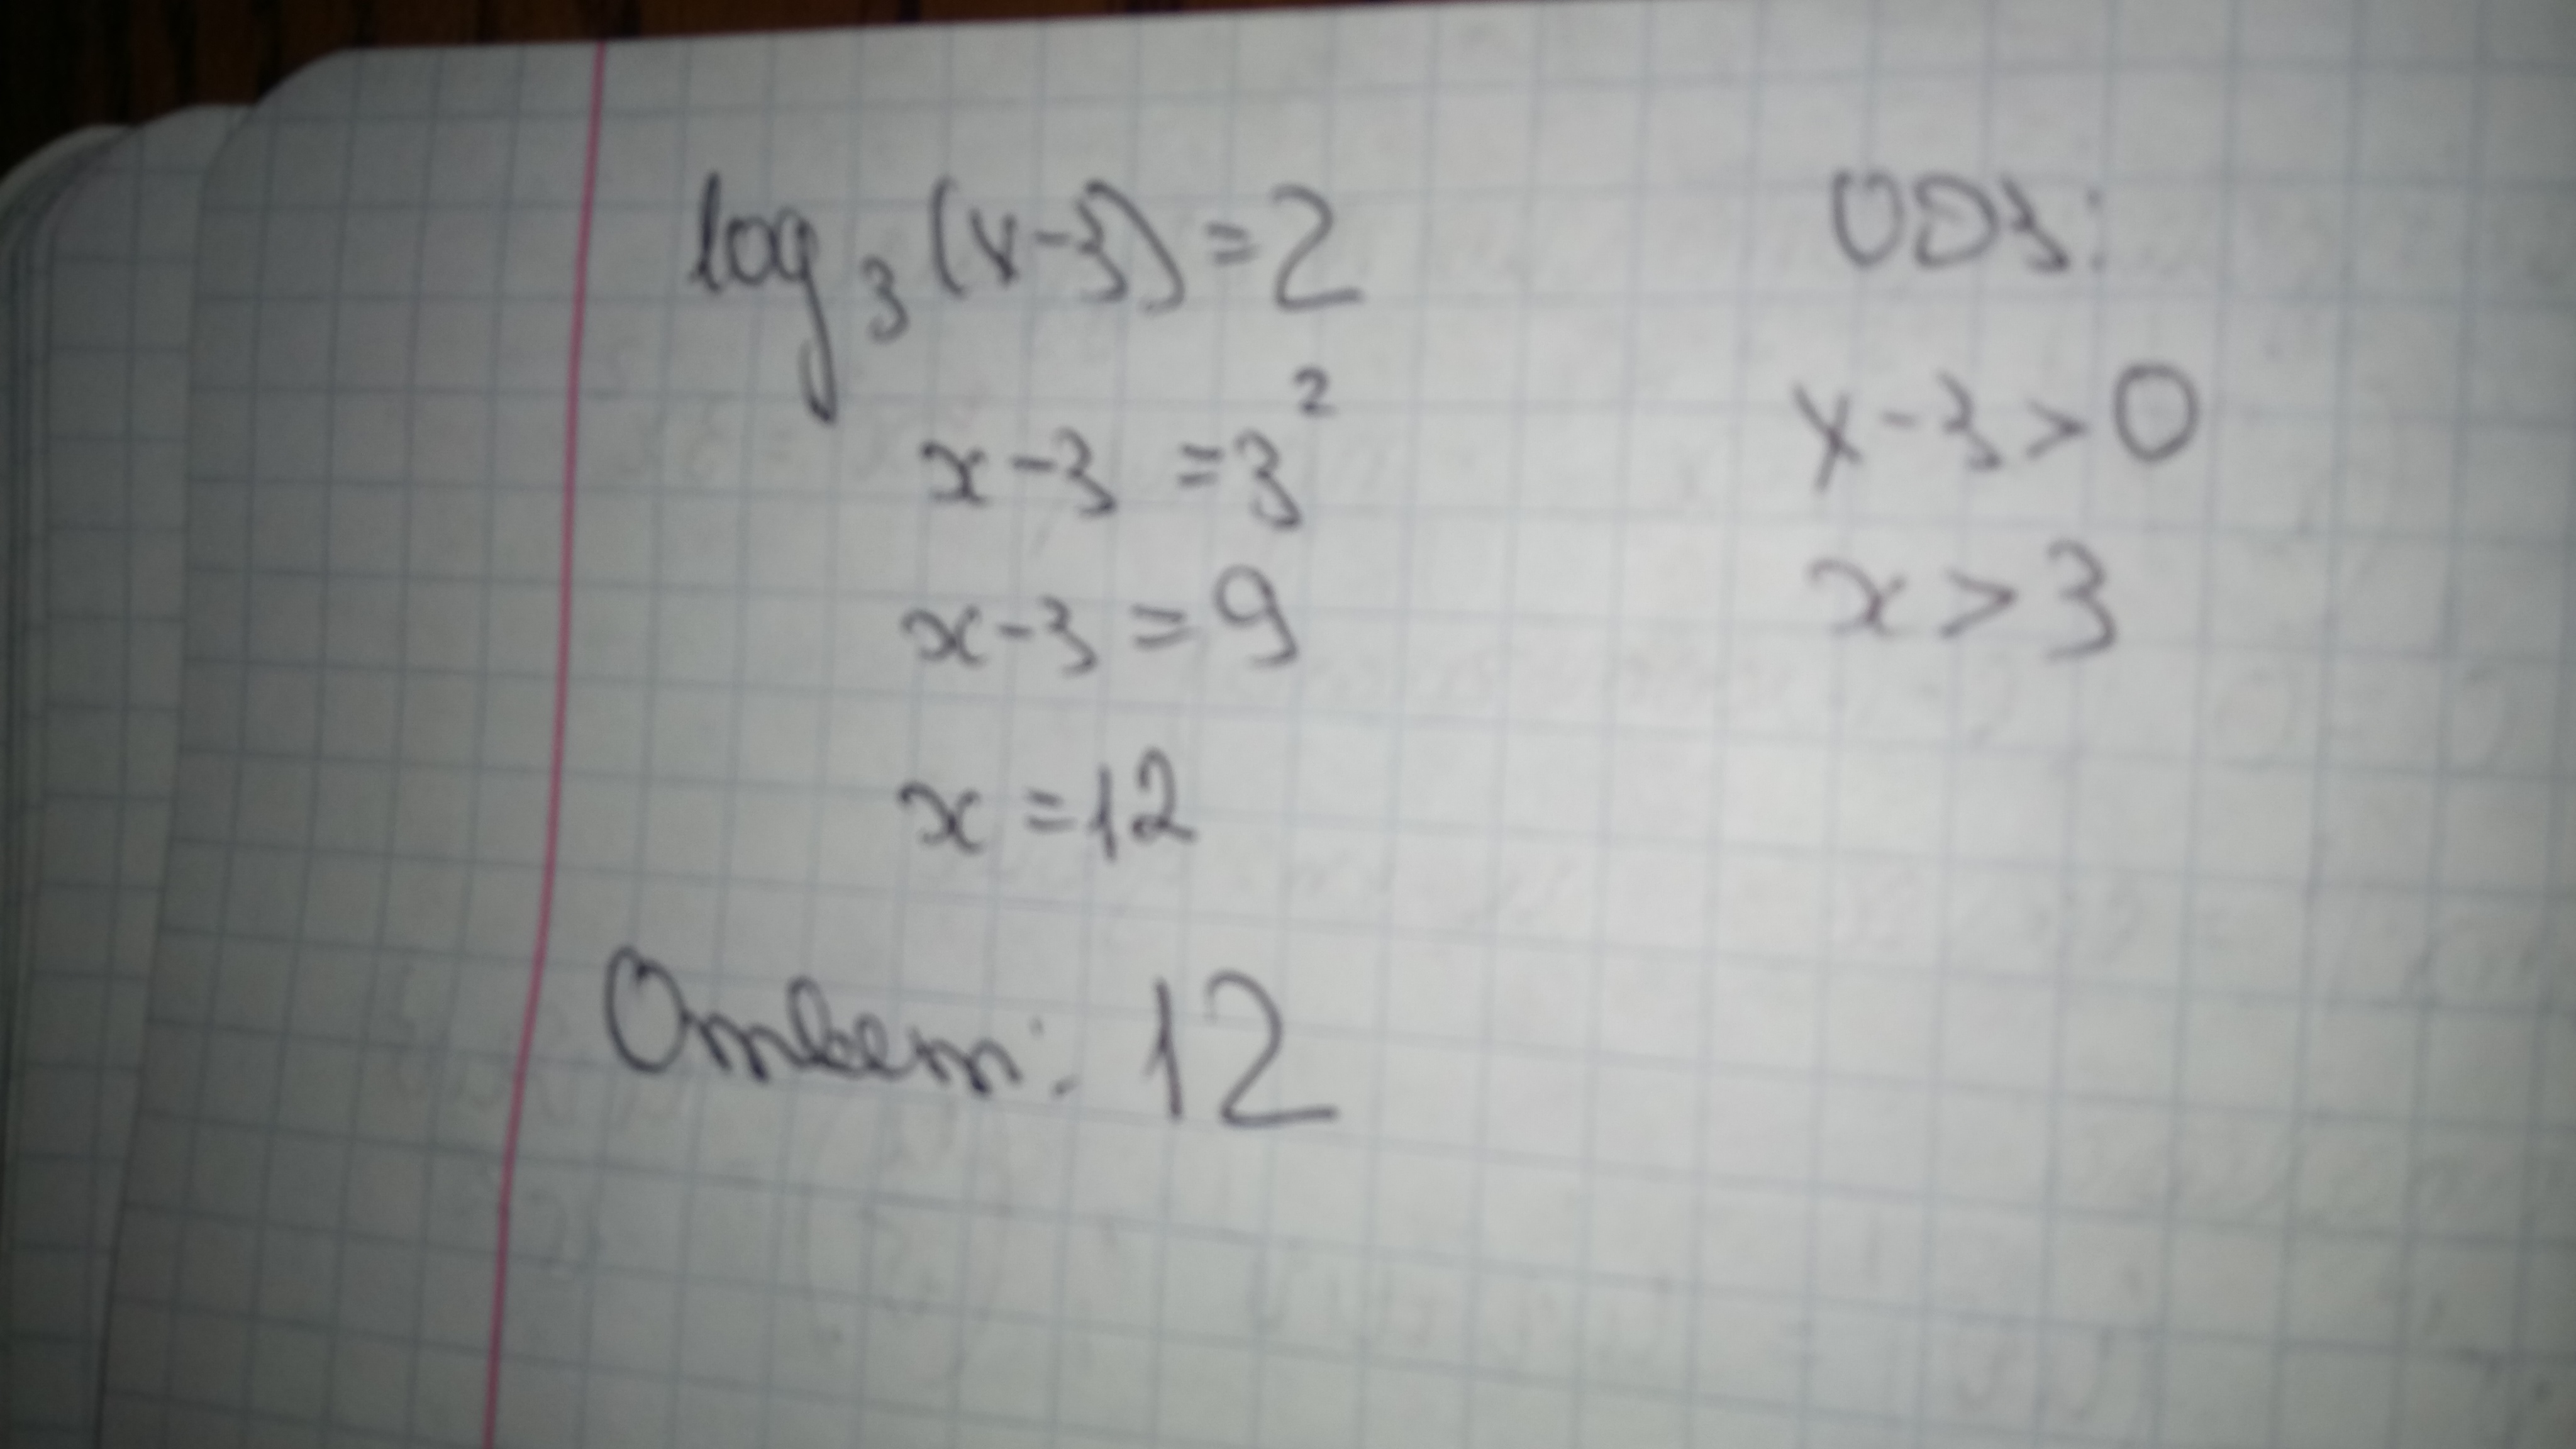 log₃(x-3)=2
x-3=3²
x-3=9
x=12
Ответ: 12
ОДЗ:
x-3>0
x>3